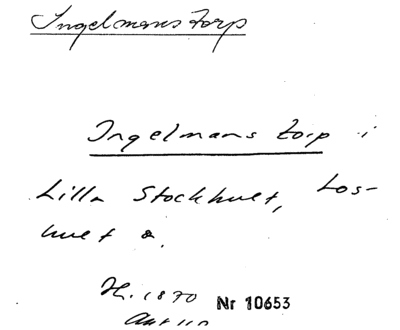 Ingelmanstorp
Ingelmans torp i
Lilla Stockhult, Los-
hult s.
H. 1870 Nr 10653